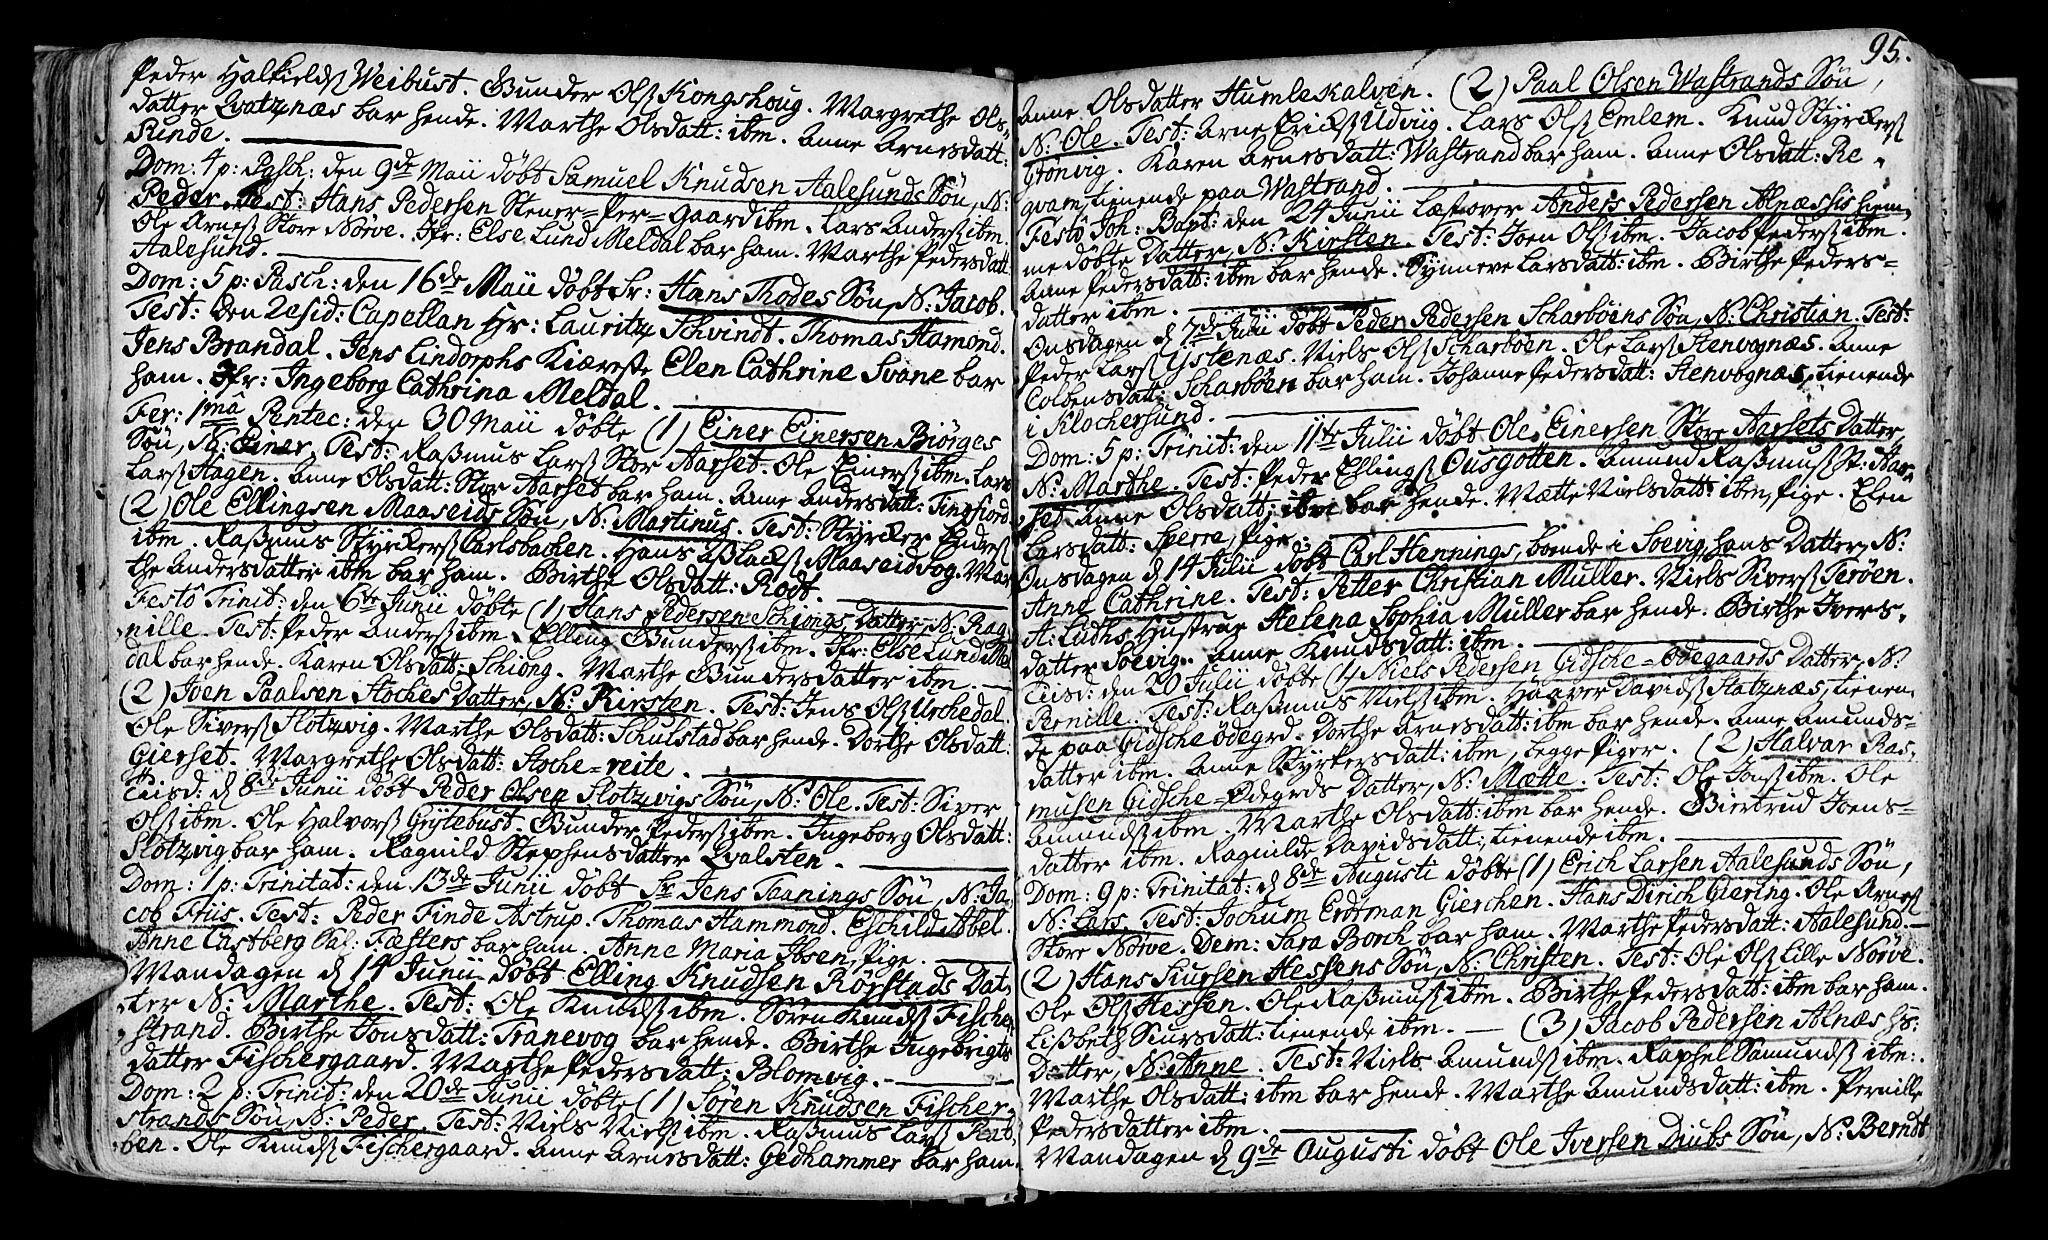 Peder Halkields Weibust. Gunder Ols Kongshoug. Margrethe Ols-
datter Qvatznæs bar hende. Marthe Olsdatt: ibm. Anne Arnesdatt:
Rinde.
Dom: 4 p: Pasch: den 9de Maii döbt Samuel Knudsen Aalesunds Sön, N:
Peder. Test: Hans Pedersen Stener=Per=gaard ibm. Lars Anders ibm.
Ole Arnes Store Nörve. Jfr: Else Lund Meldal bar ham. Marthe Pedersdatt:
Aalesund.
Dom: 5 p: Pasch: den 16de Maii döbt Sr: Hans Thodes Sön, N: Jacob.
Test: Den Resid: Capellan Hr: Lauritz Schvindt. Thomas Hamond.
Jens Brandal. Jens Lindorphs Kiæreste Elen Cathrine Svane bar
ham. Jfr: Ingeborg Cathrina Meldal.
Fer: 1mâ Pentec: den 30 Maii döbte (1) Einer Einersen Biörges
Sön, N: Einer. Test: Rasmus Lars Stor Aarset. Ole Einers ibm. Lars
Lars Hagen. Anne Olsdatt: Stor Aarset bar ham. Anne Andersdatt: Tingfiord.
(2) Ole Ellingsen Maaseids Sön, N: Martinus. Test: Styrcker Enders
ibm. Rasmus Styrckers Carlsbachen. Hans Aslacks Maaseidvog. Mar-
the Andersdatter ibm bar ham. Birthe Olsdatt: Rödt.
Festô Trinit: den 6te Junii döbte (1) Hans Pedersen Schiongs Datter, N: Rag-
nille. Test: Peder Anders ibm. Elling Gunders ibm. Jfr: Else Lund Mel-
dal bar hende. Karen Olsdatt: Schiong. Marthe Gundersdatter ibm.
(2) Iven Paalsen Hoches Datter, N: Kirsten. Test: Jens Ols Urchedal.
Ole Sivers Slotzvig. Marthe Olsdatt: Schulstad bar hende. Dorthe Olsdatt:
Gierset. Margrethe Olsdatt: Hoche=reite.
Tiisd: d 8de Junii döbt Peder Olsen Slotzvigs Sön, N: Ole. Test: Siver
Ols ibm. Ole Halvors Geytebust. Gunder Peders ibm. Ingeborg Olsdatt:
Slotzvig bar ham. Ragnild Stephensdatter Qvalsten.
Dom: 1 p: Trinitat: den 13de Junii döbt Sr Jens Taanings Sön, N: Ja-
cob Friis. Test: Peder Finde Astrup. Thomas Hammond. Eschild Abel.
Anne Listberg Sal: Fæsters bar ham. Anne Maria Ibsen, Pige.
Mandagen d 14 Junii döbt Elling Knudsen Rörstads Dat-
ter N: Marthe. Test: Ole Knuds ibm. Sören Knuds Fischer-
strand. Birthe Jonsdatt: Tranevog bar hende. Birthe Ingebrigts
datter Fischergaard. Marthe Pedersdatt: Blomvig.
Dom: 2 p: Trinit: den 20de Junii döbte (1) Sören Knudsen Fischer-
strands Sön, N: Peder. Test: Niels Niels ibm. Rasmus Lars
ben. Ole Knuds Fischergaard. Anne Arnesdatt: Gedhammer bar ham.
95.
Anne Olsdatter Humlekalven. (2) Paal Olsen Wastrands Sön,
N: Ole. Test: Arne Ericks Udvig. Lars Ols Emlem. Knud Styrckers
Grönvig. Karen Arnesdatt: Wastrand bar ham. Anne Olsdatt: Re-
qvam, tienende paa Wastrand.
Festô Joh: Bapt: den 24 Junii læst over Anders Pedersen Alnæssis hiem-
me döbte Datter, N: Kirsten. Test: Joen Ols ibm. Jacob Peders ibm.
Anne Pedersdatt: ibm bar hende. Synneve Larsdatt: ibm. Birthe Peders-
datter ibm.
Onsdagen d 7de Julii döbt Peder Pedersen Scharböens Sön, N: Christian. Test:
Peder Lars Ystenæs. Niels Ols Scharböen. Ole Lars Stenvognæs. Anne
Colbensdatt: Scharböen bar ham. Johanne Pedersdatt: Stenvognæs, tienende
i Klochersund.
Dom: 5 p: Trinit: den 11te Julii döbt Ole Einersen Store Aarsets Datter,
N: Marthe. Test: Peder Ellings Ousgötten. Amund Rasmus St: Aar-
set. Anne Olsdatt: ibm bar hende. Mætte Nielsdatt: ibm, Pige. Elen
Larsdatt: Sperre, Pige.
Onsdagen d 14 Julii döbt Carl Hennings, boende i Soevig, hans Datter, N:
Anne Cathrine. Test: Petter Christian Müller. Niels Sivers Teröen.
A: Ludts Hustrue Helena Sophia Müller bar hende. Birthe Ivers-
datter Soevig. Anne Knudsdatt: ibm.
Tiisd: den 20 Julii döbte (1) Niels Pedersen Gidsche=Ödegaards Datter, N:
Pernille. Test: Rasmus Niels ibm. Haaver Davids Slotznæs, tienen-
de paa Gidsche ödegrd. Dorthe Arnesdatt: ibm bar hende. Anne Amunds-
datter ibm. Anne Styrkersdatt: ibm, begge Piger. (2) Halvar Ras-
musen Gidsche=Ödegrds Datter, N: Mætte. Test: Ole Jons ibm. Ole
Amunds ibm. Marthe Olsdatt: ibm bar hende. Giertrud Joens-
datter ibm. Ragnilde Davidsdatt: tienende ibm.
Dom: 9 p: Trinitat: d 8de Augusti döbte (1) Erich Larsen Aalesunds Sön,
N: Lars. Test: Jochum Erdtman Gierchen. Hans Dirich Giering. Ole Arnes
Store Nörve. Dem: Sara Borch bar ham. Marthe Pedersdatt: Aalesund.
(2) Hans Siursen Hessens Sön, N: Christen. Test: Ole Ols Lille Nörve.
Ole Ols Hessen. Ole Rasmus ibm. Birthe Pedersdatt: ibm bar ham.
Lisbeth Siursdatt: tienende ibm. — (3) Jacob Pedersen Alnæs hs:
Datter, N: Anne. Test: Niels Amunds ibm. Raphel Samunds ibm:
Marthe Olsdatt: ibm bar hende. Marthe Amundsdatt: ibm. Pernille
Pedersdatter ibm.
Mandagen d 9de Augusti döbt Ole Iversen Diubs Sön, N: Berndt